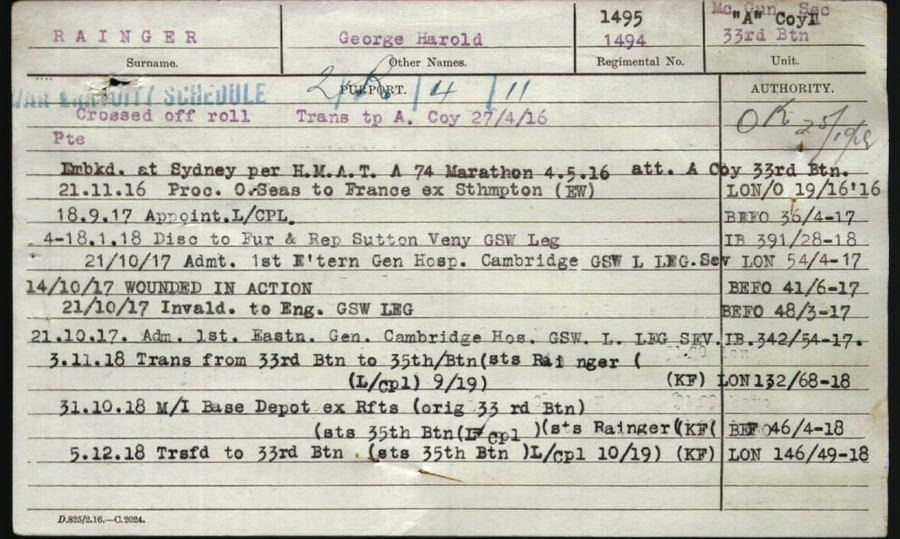 RAINGER
Surname.
George Harold
Other Names.
1495
1494
Regimental No.
Mc Gun Sec
"A" Coy
33rd Btn
Unit.
WAR GRATUITY SCHEDULE
PURPORT.
AUTHORITY.
Crossed off roll Trans tp A. Coy 27/4/16
OK
Pte
Embkd. at Sydney per H.M.A.T. A 74 Marathon 4.5.16 att. A Coy 33rd Btn.
21.11.16 Proc. O.Seas to France ex Sthmpton (EW) LON/O 19/16'16
18.9.17 Appoint.L/CPL. BEFO 36/4-17
4-18.1.18 Disc to Fur & Rep Sutton Veny GSW Leg IB 391/28-18
21/10/17 Admt. 1st E'tern Gen Hosp. Cambridge GSW L LEG.Sev LON 54/4-17
14/10/17 WOUNDED IN ACTION BEFO 41/6-17
21/10/17 Invald. to Eng. GSW LEG BEFO 48/3-17
21.10.17. Adm. 1st. Eastn. Gen. Cambridge Hos. GSW. L. LEG SEV. IB.342/54-17.
3.11.18 Trans from 33rd Btn to 35th/Btn(sts Rainger (
(L/cpl) 9/19) (KF) LON132/68-18
31.10.18 M/I Base Depot ex Rfts (orig 33 rd Btn)
(sts 35th Btn(L/cpl )(sts Rainger((KF( BEFO 46/4-18
5.12.18 Trsfd to 33rd Btn (sts 35th Btn )L/cpl 10/19) (KF) LON 146/49-18
D.825/2.16.—C.2024.